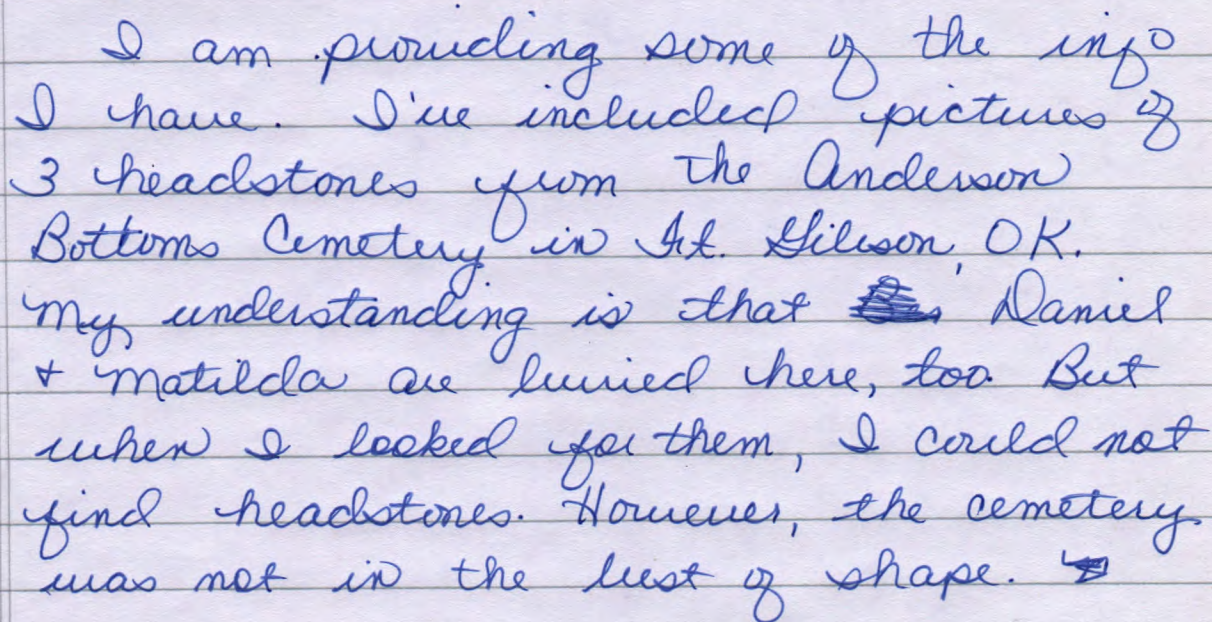 I am providing some of the info
I have. I've included pictures of
3 headstones from the Anderson
Bottoms Cemetery in Ft. Gibson, OK.
My understanding is that Daniel
+ Matilda are buried here, too. But
when I looked for them, I could not
find headstones. However, the cemetery
was not in the best of shape.